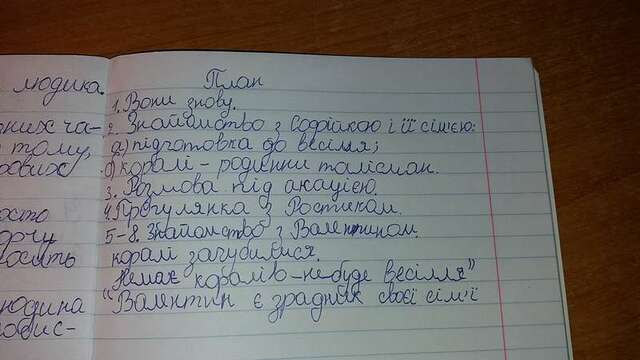 людика.
рних ча-
тому,
рових
росто
орчу
носить
людина
ровис-
План
1. Вони знову.
2. Знайомство з Софійкою і її сім'єю:
а) підготовка до весілля;
б) коралі – родинни талісман.
3. Розмова під акацією.
4. Прогулянка з Ростиком.
5-8. Знайомство з Валентином.
коралі загубилися.
"Немає коралів – не буде весілля"
"Валентин є зрадник своєї сім'ї